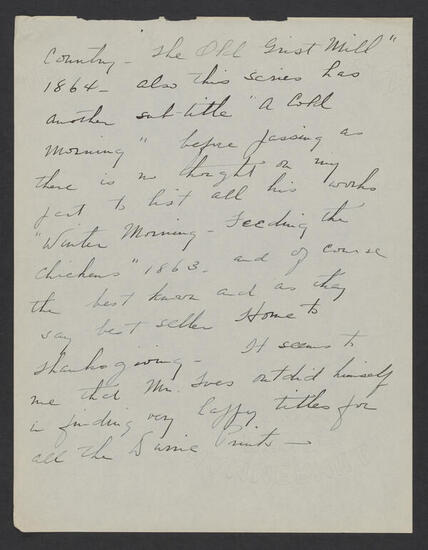 Country - The Old Grist Mill"
1864 - also this series has
another sub-title "A Cold
Morning" before passing as
there is no thought on my
part to list all his works
"Winter Morning - Feeding the
chickens" 1863 - and of course
the best known and as they
say best seller Home to
Thanksgiving - It seems to
me that Mr. Ives outdid himself
in finding very happy titles for
all the Durrie Prints -